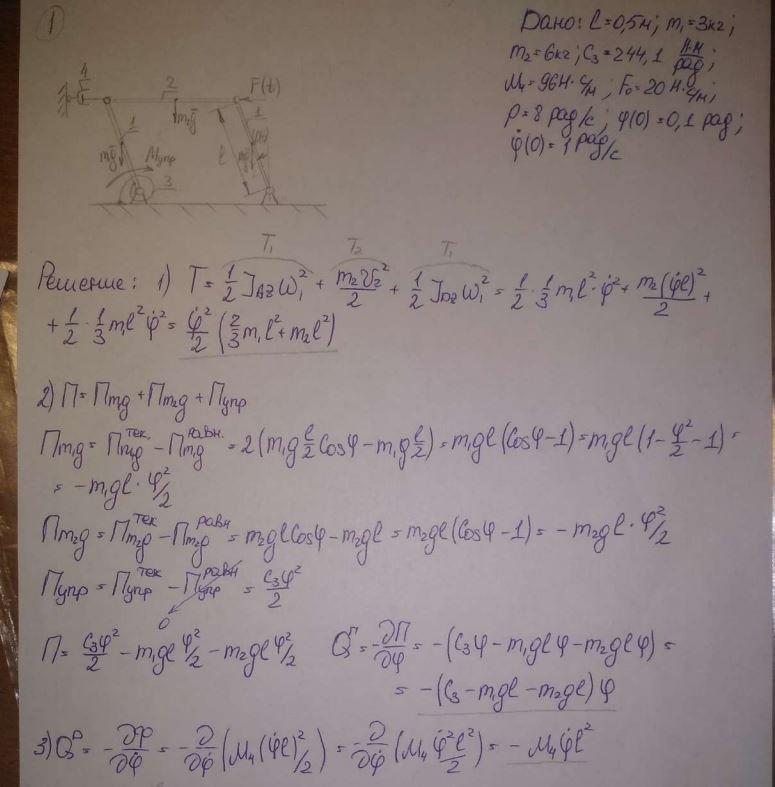 1
Дано: l=0,5м; m₁=3кг;
m₂=6кг; c₃=244,1 Н·м/рад;
μ₄=96Н·с/м; F₀=20Н·с/м;
p=8 рад/с; φ(0)=0,1 рад;
φ̇(0)=1 рад/с
4
2
F(t)
m₂g̅
1
1
m₁g̅
Mупр
l
3
T₁ T₂ T₁
Решение: 1) T = 1/2 J_AZ ω₁² + m₂V₂²/2 + 1/2 J_DZ ω₁² = 1/2 · 1/3 m₁l² · φ̇² + m₂(φ̇l)²/2 +
+ 1/2 · 1/3 m₁l² φ̇² = φ̇²/2 (2/3 m₁l² + m₂l²)
2) П = Пm₁g + Пm₂g + Пупр
Пm₁g = Пm₁g^тек. − Пm₁g^равн. = 2(m₁g l/2 cosφ − m₁g l/2) = m₁gl(cosφ−1) = m₁gl(1 − φ²/2 − 1) =
= −m₁gl · φ²/2
Пm₂g = Пm₂g^тек − Пm₂g^равн = m₂gl cosφ − m₂gl = m₂gl(cosφ−1) = −m₂gl · φ²/2
Пупр = Пупр^тек − Пупр^равн = c₃φ²/2
0
П = c₃φ²/2 − m₁gl φ²/2 − m₂gl φ²/2 Q^П = −∂П/∂φ = −(c₃φ − m₁glφ − m₂glφ) =
= −(c₃ − m₁gl − m₂gl)φ
3) Q^Φ = −∂Φ/∂φ̇ = −∂/∂φ̇ (μ₄(φ̇l)²/2) = −∂/∂φ̇ (μ₄ φ̇²l²/2) = −μ₄φ̇l²